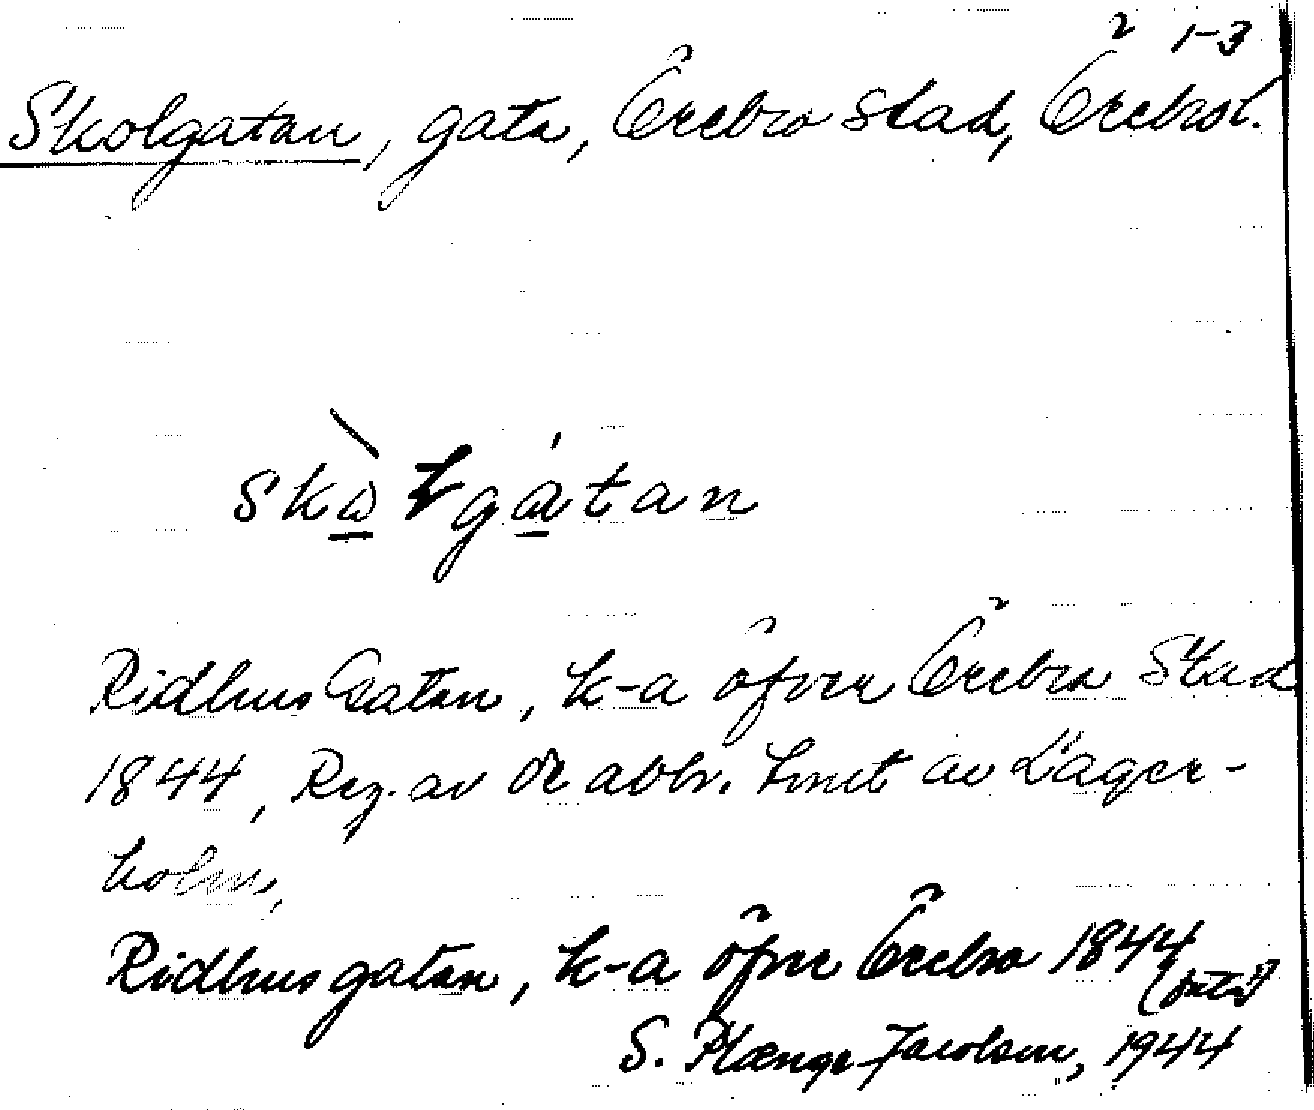 1-3
Skolgatan, gata, Örebro stad, Örebro l.
skòlgátan
Ridhus Gatan, k-a öfver Örebro Stad
1844, Reg. av de abbr. hmet av Lager-
holm,
Ridhusgatan, k-a öfver Örebro 1844
S. Plænge Jacobson, 1944